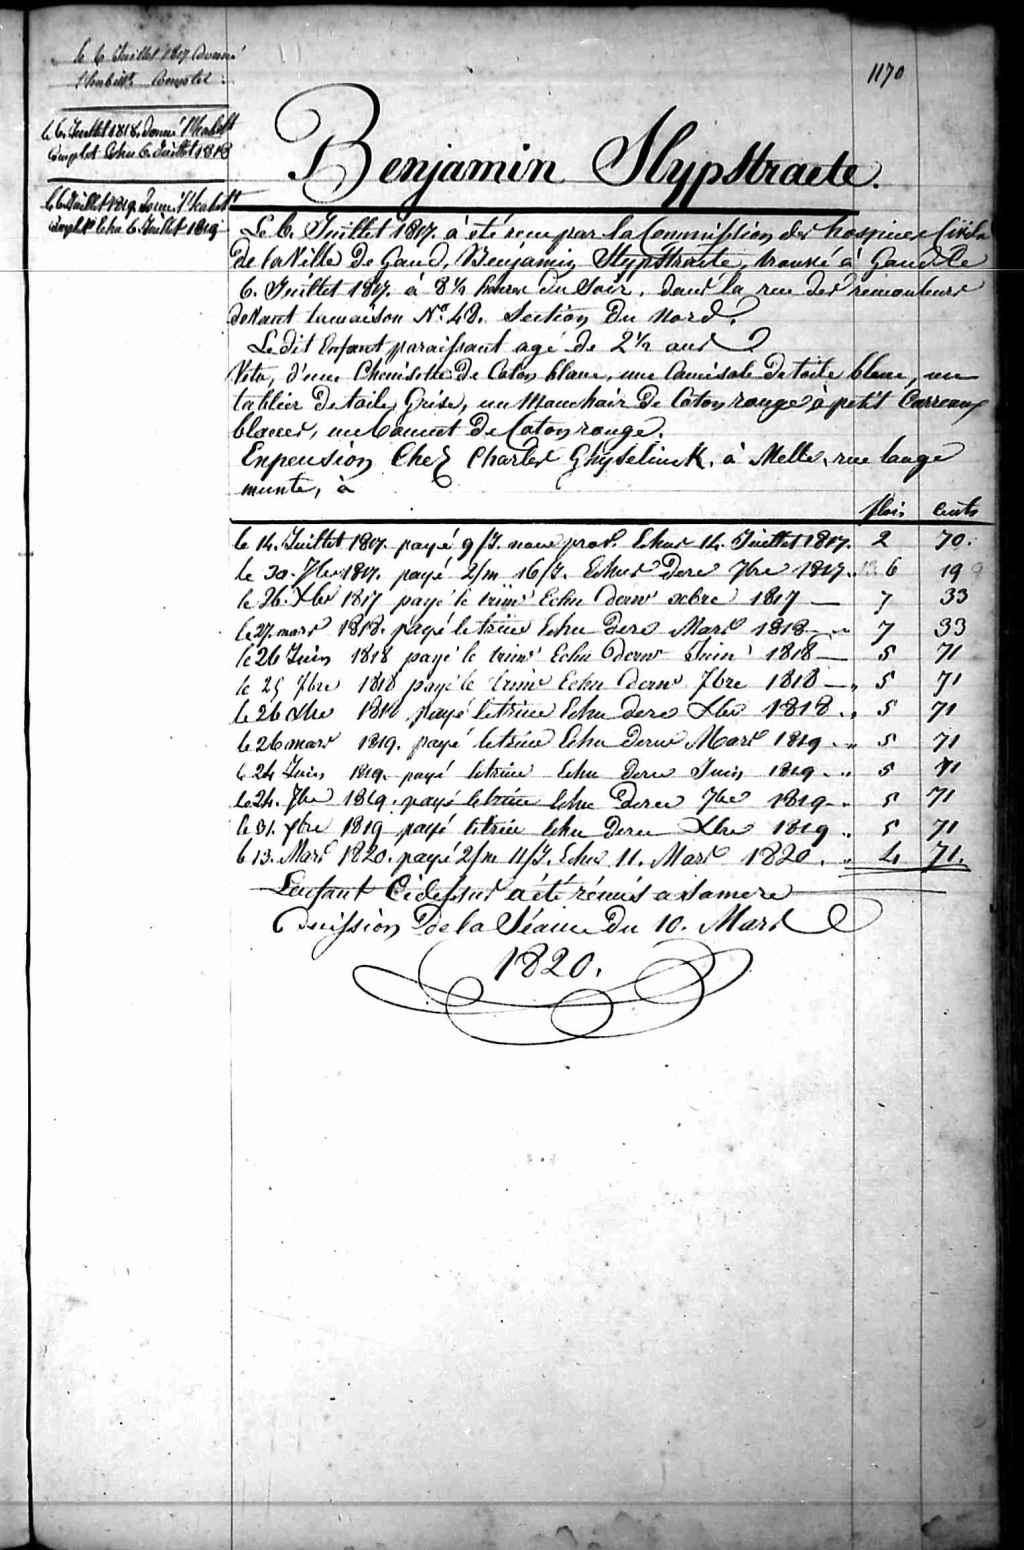 1170
le 6 Juillet 1817 donné
l'habillt complet.
le 6. Juillet 1818. donné l'habillt
complet Echu 6. Juillet 1818
le 6 Juillet 1819 donné l'habillt
complet Echu 6 Juillet 1819
Benjamin Slypstraete.
Le 6. Juillet 1817. à été recu par la Commission des hospices Civils
de la Ville De Gand, Benjamin Slypstraete, trouvé à Gand Le
6. Juillet 1817. à 8½ heures du Soir, dans la rue des remouleurs
devant la maison No. 48. Section Du Nord.
Le dit Enfant paraissant agé de 2½ ans
Vetu, d'une Chemisette De Coton blanc, une Camisole De toile bleue, un
tablier De toile Grise, un Mouchoir De Coton rouge à petit Carreaux
blancs, un bonnet De Coton rouge.
En pension Chez Charles Ghyselinck, à Melle, rue lange
munte, à
flois cents
le 14. Juillet 1817. payé 9/J. nour prov. Echus 14. Juillet 1817. 2 70.
le 30. 7bre 1817. payé 2/m 16/J. Echus Dere 7bre 1817. 6 19
le 26. Xbr 1817 payé le trim Echu Dernr Xbre 1817 — 7 33
le 27. mars 1818. payé le trim Echu Dere Mars 1818 — 7 33
le 26 Juin 1818 payé le trimr Echu Dernr Juin 1818 — 5 71
le 25 7bre 1818 payé le trimr Echu Dernr 7bre 1818 — 5 71
le 26 Xbre 1818 payé le trim Echu Dere Xbr 1818 . 5 71
le 26 mars 1819. payé le trim Echu Dern Mars 1819 . 5 71
le 24 Juin 1819. payé le trim Echu Dern Juin 1819 . 5 71
le 24. 7bre 1819. payé le trim Echu Dern 7bre 1819 . 5 71
le 31. Xbre 1819 payé le trim Echu Dern Xbre 1819 . 5 71
le 13. Mars 1820. payé 2/m 11/J. Echus 11. Mars 1820. 4 71.
L'enfant Cidessus a été rémis a sa mere
Omission De la Séance Du 10. Mars
1820.